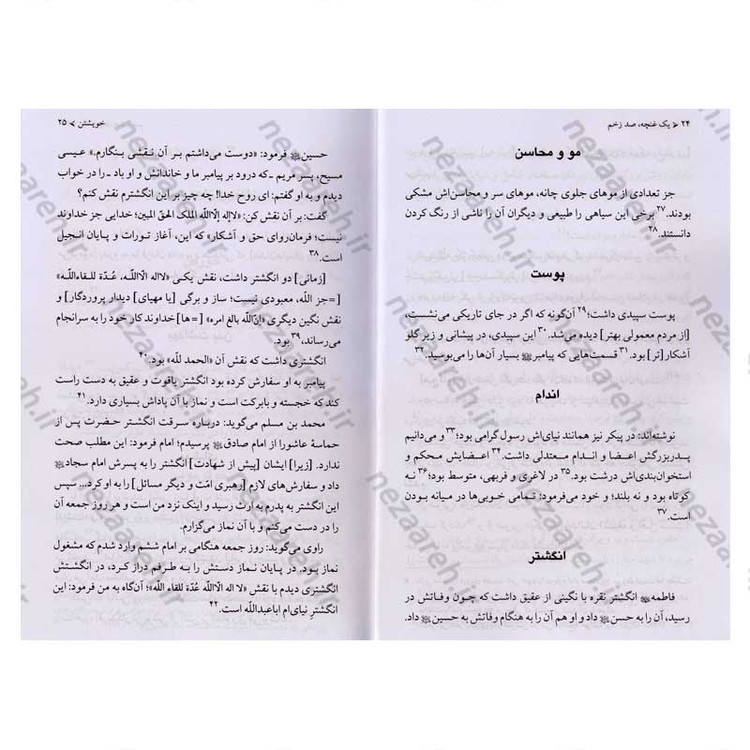 ۲۴ ⮜ یک غنچه، صد زخم
مو و محاسن
جز تعدادی از موهای جلوی چانه، موهای سر و محاسن‌اش مشکی
بودند.۲۷ برخی این سیاهی را طبیعی و دیگران آن را ناشی از رنگ کردن
دانستند.۲۸
پوست
پوست سپیدی داشت؛۲۹ آن‌گونه که اگر در جای تاریکی می‌نشست،
[از مردم معمولی بهتر] دیده می‌شد.۳۰ این سپیدی، در پیشانی و زیر گلو
آشکار[تر] بود.۳۱ قسمت‌هایی که پیامبرﷺ بسیار آن‌ها را می‌بوسید.۳۲
اندام
نوشته‌اند: در پیکر نیز همانند نیای‌اش رسول گرامی بود؛۳۳ و می‌دانیم
پدربزرگش اعضا و اندام معتدلی داشت.۳۴ اعضایش محکم و
استخوان‌بندی‌اش درشت بود.۳۵ در لاغری و فربهی، متوسط بود؛۳۶ نه
کوتاه بود و نه بلند؛ و خود می‌فرمود: تمامی خوبی‌ها در میانه بودن
است.۳۷
انگشتر
فاطمه انگشتر نقره با نگینی از عقیق داشت که چون وفاتش در
رسید، آن را به حسن داد و او هم آن را به هنگام وفاتش به حسین داد.
خویشتن ⮞ ۲۵
حسین فرمود: «دوست می‌داشتم بر آن نقشی بنگارم.» عیسی
مسیح، پسر مریم ـ که درود بر پیامبر ما و خاندانش و او باد ـ را در خواب
دیدم و به او گفتم: ای روح خدا! چه چیز بر این انگشترم نقش کنم؟
گفت: بر آن نقش کن: «لااِله الاّاللّه الملک الحق المبین؛ خدایی جز خداوند
نیست؛ فرمان‌روای حق و آشکار» که این، آغاز تورات و پایان انجیل
است.۳۸
[زمانی] دو انگشتر داشت، نقش یکی «لااله الاّاللّه، عُدّة للقاءاللّه»
[=جز اللّه، معبودی نیست؛ ساز و برگی [یا مهیای] دیدار پروردگار] و
نقش نگین دیگری «اِنّ‌اللّه بالغ امره» [=ها] خداوند کار خود را به سرانجام
می‌رساند،۳۹ بود.
انگشتری داشت که نقش آن «الحمد للّه» بود.۴۰
پیامبر به او سفارش کرده بود انگشتر یاقوت و عقیق به دست راست
کند که خجسته و بابرکت است و نماز با آن پاداش بسیاری دارد.۴۱
محمد بن مسلم می‌گوید: درباره سرقت انگشتر حضرت پس از
حماسهٔ عاشورا از امام صادق پرسیدم؛ امام فرمود: این مطلب صحت
ندارد. [زیرا] ایشان [پیش از شهادت] انگشتر را به پسرش امام سجاد
داد و سفارش‌های لازم [رهبری امّت و دیگر مسائل] را به او کرد... سپس
این انگشتر به پدرم به ارث رسید و اینک نزد من است و هر روز جمعه آن
را در دست می‌کنم و با آن نماز می‌گزارم.
راوی می‌گوید: روز جمعه هنگامی بر امام ششم وارد شدم که مشغول
نماز بود. در پایان نماز دستش را به طرفم دراز کرد، در انگشتش
انگشتری دیدم با نقش «لا اله الاّاللّه عُدّة للقاء اللّه»؛ آن‌گاه به من فرمود: این
انگشترِ نیای‌ام اباعبداللّه است.۴۲
nezaareh.ir